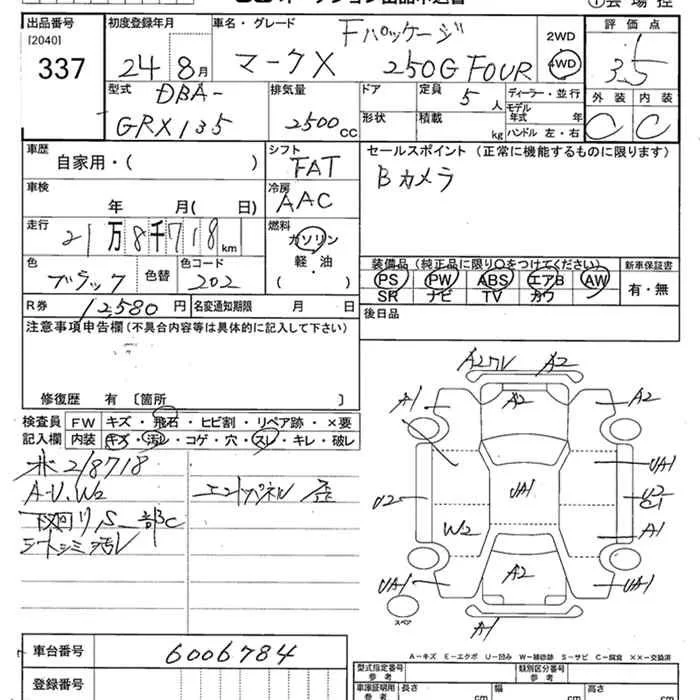 オークション出品申込書
①会場控
出品番号
[2040]
337
初度登録年月
24年 8月
車名・グレード
Fパッケージ
マークX 250G FOUR
2WD
4WD
評価点
3.5
型式
DBA-
GRX135
排気量
2500cc
ドア
形状
定員 5人
積載 kg
ディーラー・並行
モデル年式 年
ハンドル 左・右
外装 内装
C C
車歴
自家用・( )
シフト
FAT
セールスポイント (正常に機能するものに限ります)
Bカメラ
車検
年 月( 日)
冷房
AAC
走行
21万8千718km
燃料
ガソリン
軽・油
( )
色
ブラック
色替
色コード
202
装備品 (純正品に限り○をつけてください)
PS PW ABS エアB AW
SR ナビ TV カワ
新車保証書
有・無
R券 12,580円
名変通知期限 月 日
後日品
注意事項申告欄(不具合内容等は具体的に記入して下さい)
修復歴 有 〔箇所
検査員記入欄
FW キズ・飛石・ヒビ割・リペア跡・×要
内装 キズ・汚れ・コゲ・穴・スレ・キレ・破レ
米218718
A-U.W2
下回りS 一部C
シートシミ汚レ
エンドパネル 歪
A2ワレ A2
A1 A2 A2
UA1
U2 UA1 U2
C1
W2 A1
UA1 A2 UA1
スペア
A1
A−キズ E−エクボ U−凹み W−補修跡 S−サビ C−腐食 ××−交換済
車台番号 6006784
登録番号
型式指定番号
参考
類別区分番号
参考
車庫証明用
参考
長さ cm
幅 cm
高さ cm